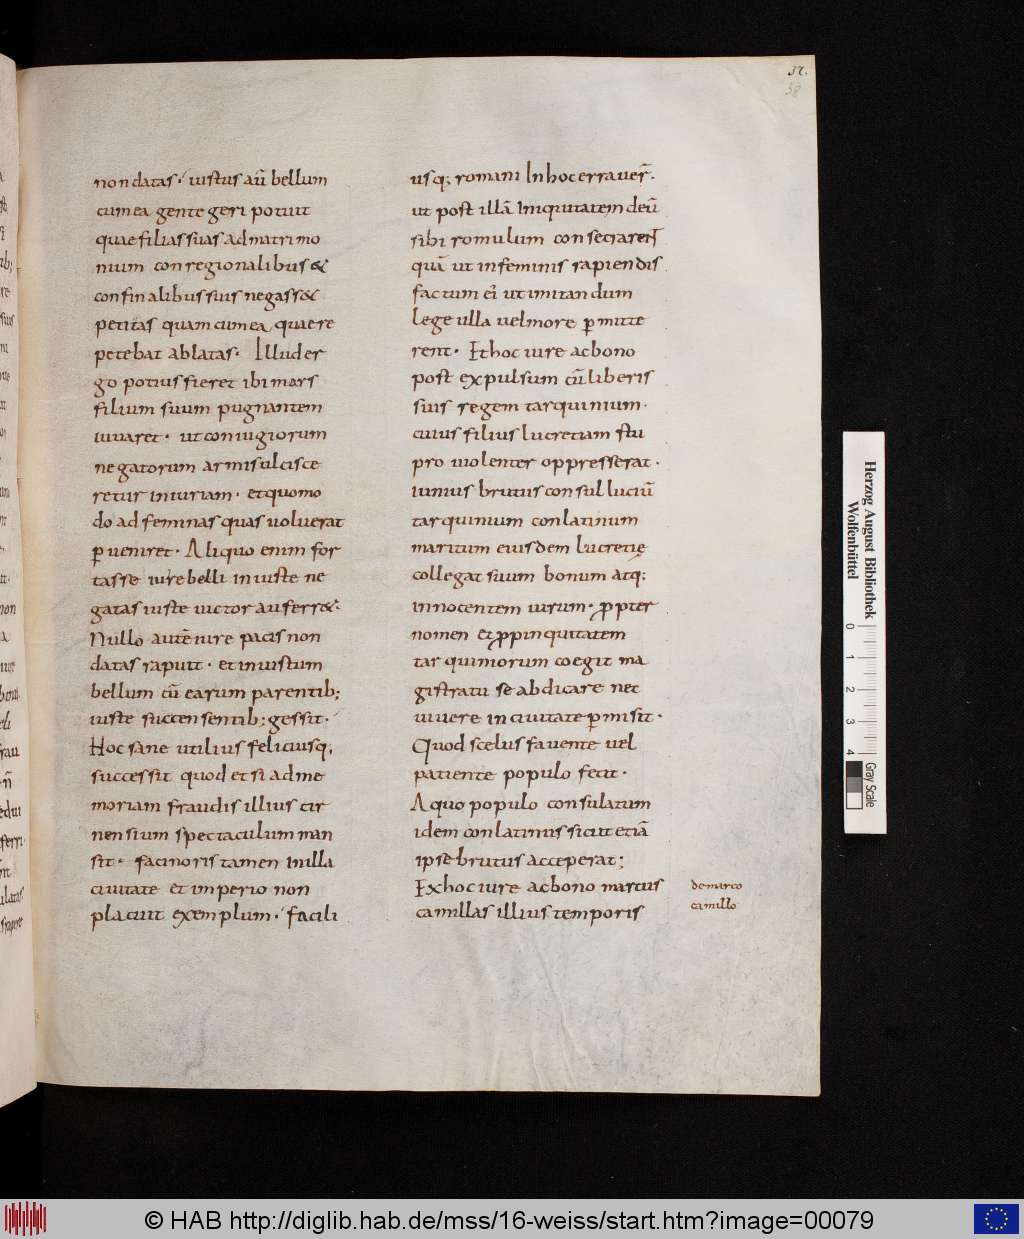 37.
38
non datas· iustius aū bellum
cum ea gente geri potuit
quae filias suas ad matrimo
nium conregionalibus &
confinalibus suis negass&
petitas quam cum ea quae re
petebat ablatas· Illud er
go potius fieret ibi mars
filium suum pugnantem
iuuaret· ut coniugiorum
negatorum armis ulcisce
retur iniuriam· et quomo
do ad feminas quas uoluerat
ꝑueniret· Aliquo enim for
tasse iure belli iniuste ne
gatas iuste uictor auferr&·
Nullo autē iure pacis non
datas rapuit· et iniustum
bellum cū earum parentib;
iuste succensentib; gessit·
Hoc sane utilius feliciusq;
successit quod etsi ad me
moriam fraudis illius cir
nensium spectaculum man
sit· facinoris tamen in illa
ciuitate et imperio non
placuit exemplum· facili
usq; romani In hoc errauer̄·
ut post illā Iniquitatem deū
sibi romulum consecrarent
quā ut in feminis rapiendis
factum ei ut imitandum
lege ulla uel more ꝑmitte
rent· Ex hoc iure ac bono
post expulsum cū liberis
suis regem tarquinium·
cuius filius lucretiam stu
pro uiolenter oppresserat·
iunius brutus consul luciū
tarquinium conlatinum
maritum eiusdem lucretię
collegat suum bonum atq;
innocentem uirum· ꝓpter
nomen et ꝓpinquitatem
tarquiniorum coegit ma
gistratu se abdicare nec
uiuere in ciuitate ꝑmisit·
Quod scelus fauente uel
patiente populo fecit·
A quo populo consulatum
idem conlatinus sicut etiā
ipse brutus acceperat;
Ex hoc iure ac bono marcus
camillas illius temporis
de marco
camillo
Herzog August Bibliothek
Wolfenbüttel
0 1 2 3 4
Gray Scale
© HAB http://diglib.hab.de/mss/16-weiss/start.htm?image=00079